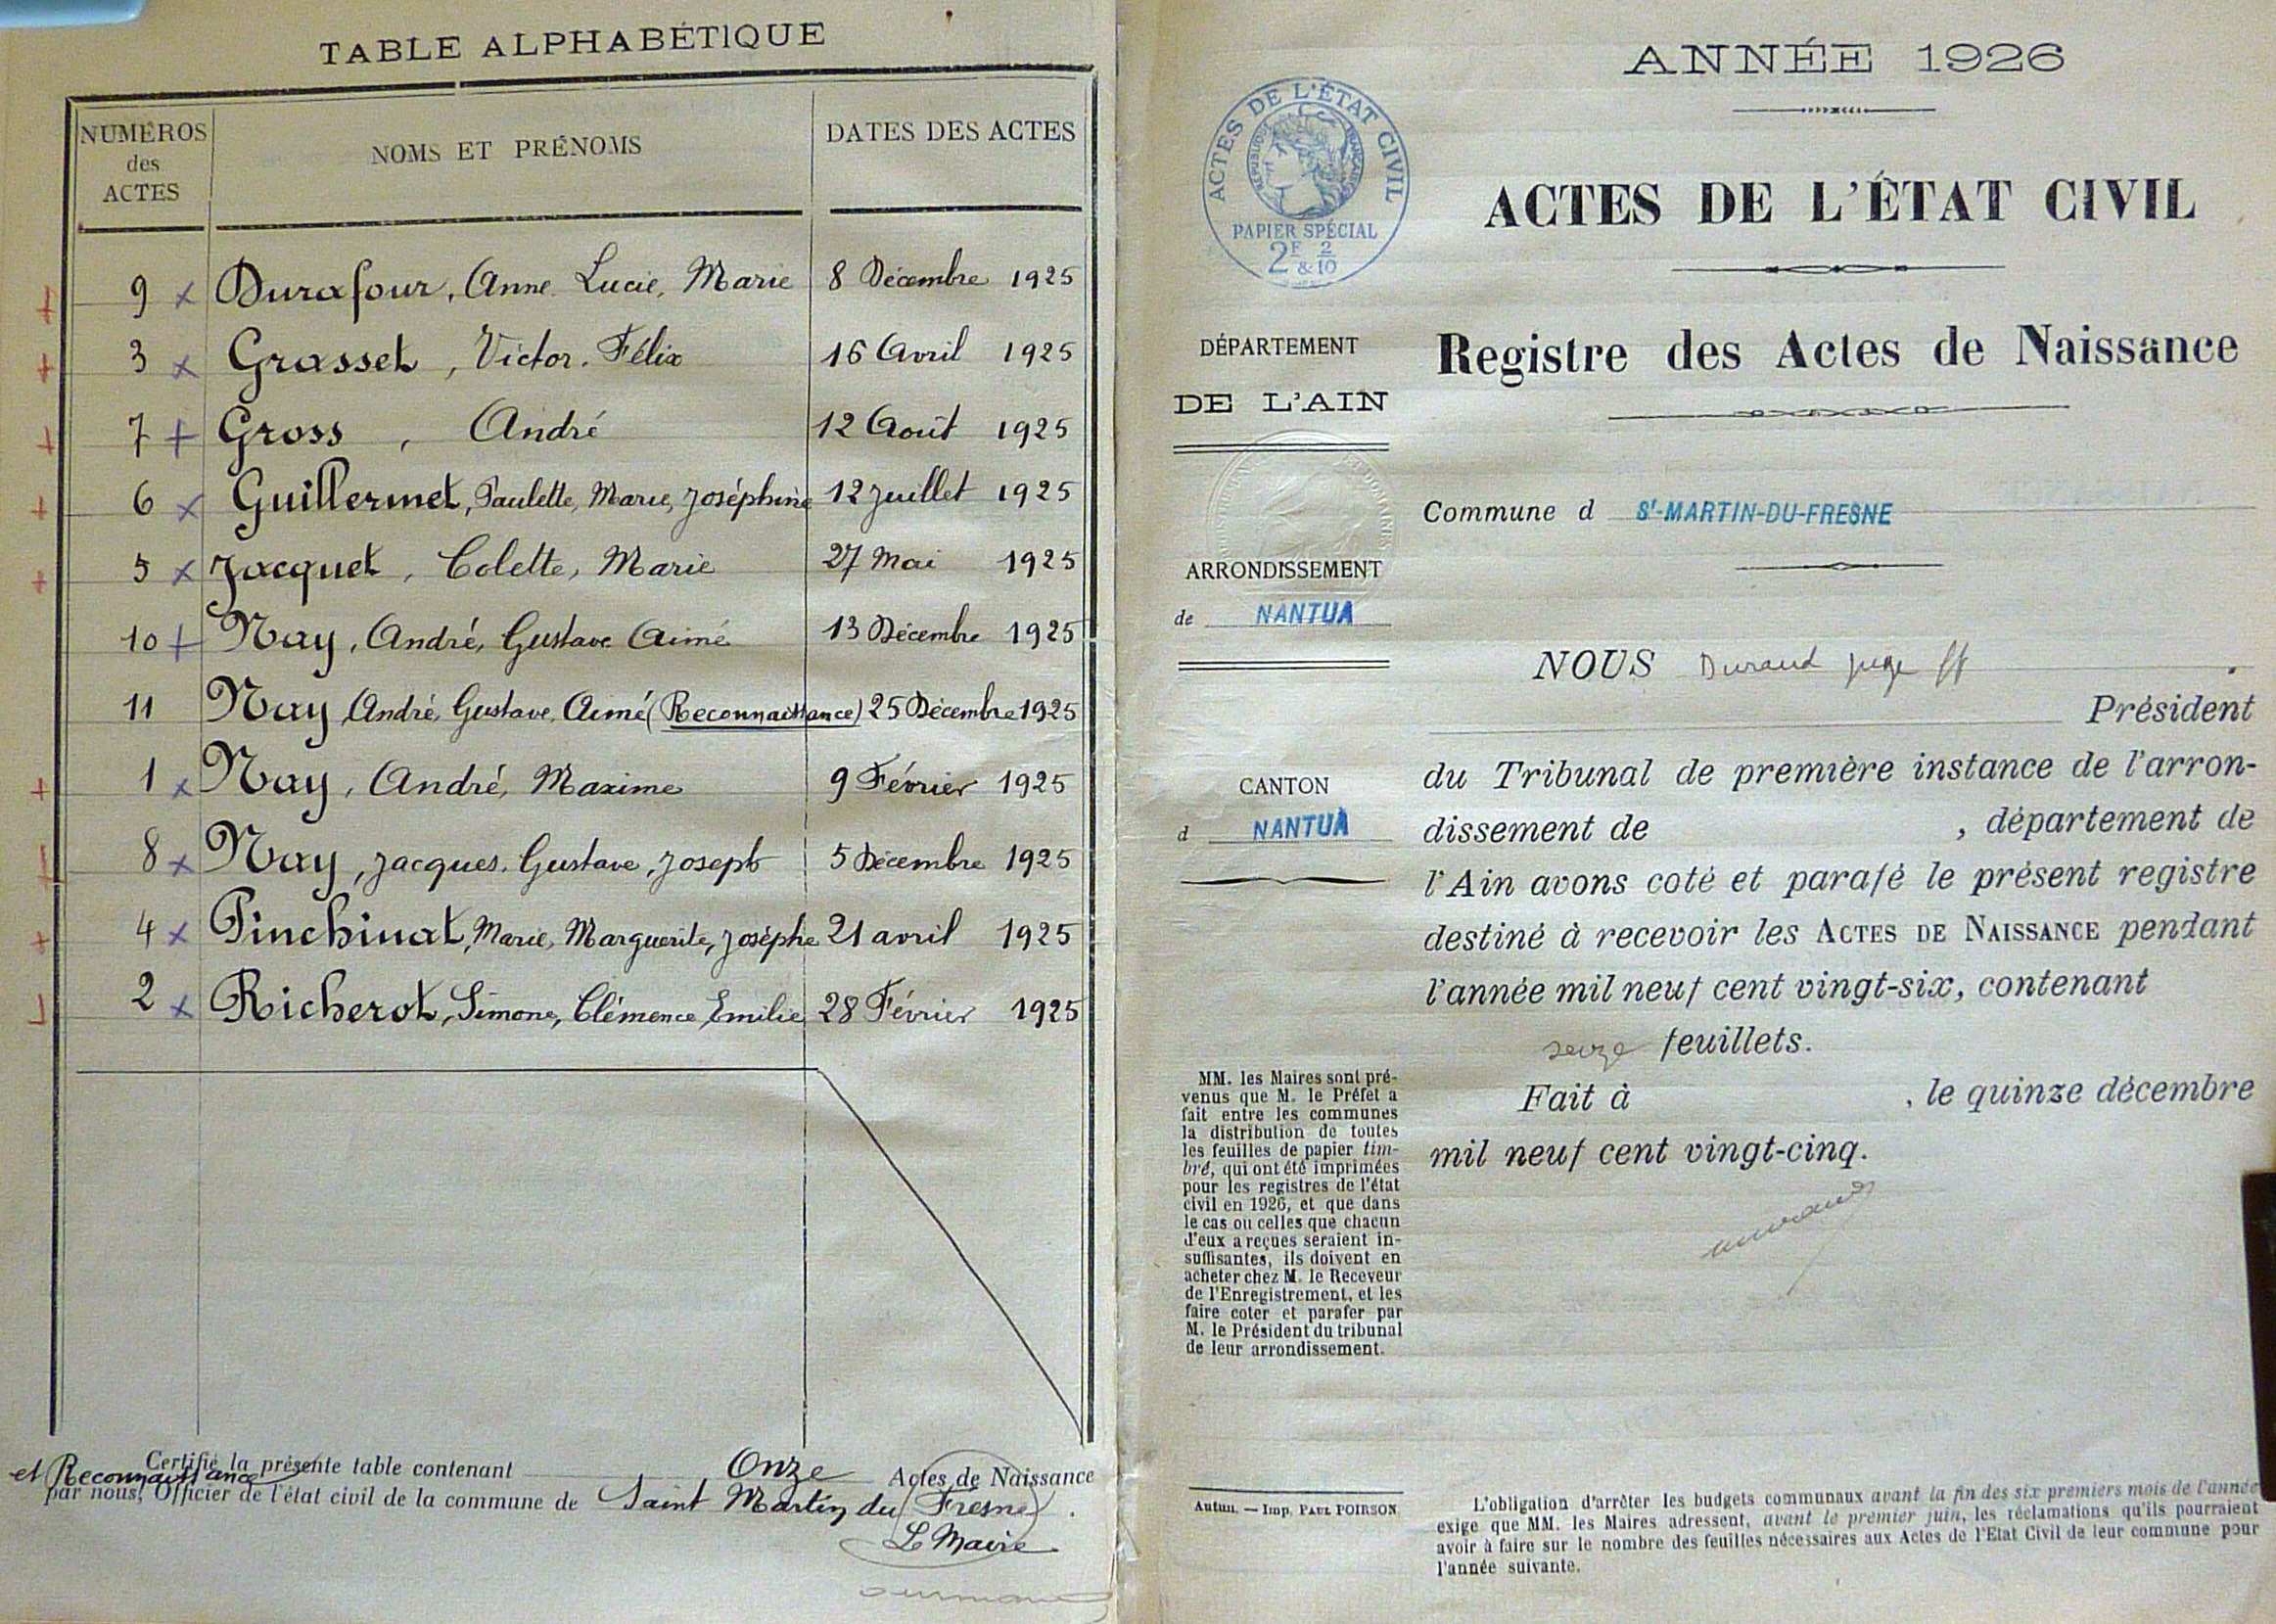 TABLE ALPHABÉTIQUE
NUMÉROS des ACTES
NOMS ET PRÉNOMS
DATES DES ACTES
9 x Durafour, Anne Lucie, Marie 8 Décembre 1925
3 x Grasset, Victor, Félix 16 Avril 1925
7 + Gross, André 12 Août 1925
6 x Guillermet, Paulette, Marie, Joséphine 12 Juillet 1925
5 x Jacquet, Colette, Marie 27 Mai 1925
10 + Nay, André, Gustave Aimé 13 Décembre 1925
11 Nay André, Gustave, Aimé (Reconnaissance) 25 Décembre 1925
1 x Nay, André, Maxime 9 Février 1925
8 x Nay, Jacques, Gustave, Joseph 5 Décembre 1925
4 x Pinchinat, Marie, Marguerite, Josèphe 21 avril 1925
2 x Richerot, Simone, Clémence, Emilie 28 Février 1925
Certifié la présente table contenant Onze Actes de Naissance
et Reconnaissance
par nous, Officier de l'état civil de la commune de Saint Martin du Fresne.
Le Maire
ANNÉE 1926
ACTES DE L'ÉTAT CIVIL
RÉPUBLIQUE FRANÇAISE
PAPIER SPÉCIAL
2F & 2/10
ACTES DE L'ÉTAT CIVIL
Registre des Actes de Naissance
DÉPARTEMENT
DE L'AIN
Commune d St-MARTIN-DU-FRESNE
ARRONDISSEMENT
de NANTUA
CANTON
d NANTUA
NOUS Durand juge ff
Président
du Tribunal de première instance de l'arron-
dissement de , département de
l'Ain avons coté et parafé le présent registre
destiné à recevoir les ACTES DE NAISSANCE pendant
l'année mil neuf cent vingt-six, contenant
seize feuillets.
Fait à , le quinze décembre
mil neuf cent vingt-cinq.
MM. les Maires sont pré-
venus que M. le Préfet a
fait entre les communes
la distribution de toutes
les feuilles de papier tim-
bré, qui ont été imprimées
pour les registres de l'état
civil en 1926, et que dans
le cas où celles que chacun
d'eux a reçues seraient in-
suffisantes, ils doivent en
acheter chez M. le Receveur
de l'Enregistrement, et les
faire coter et parafer par
M. le Président du tribunal
de leur arrondissement.
Autun. — Imp. PAUL POIRSON
L'obligation d'arrêter les budgets communaux avant la fin des six premiers mois de l'année
exige que MM. les Maires adressent, avant le premier juin, les réclamations qu'ils pourraient
avoir à faire sur le nombre des feuilles nécessaires aux Actes de l'Etat Civil de leur commune pour
l'année suivante.